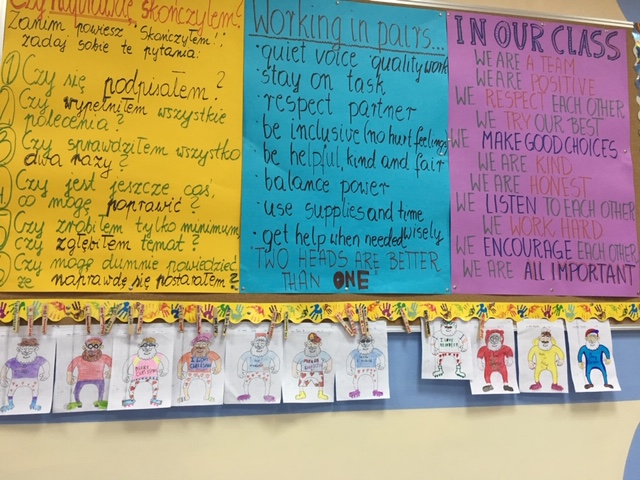 Czy naprawdę skończyłem?
Zanim powiesz "Skończyłem!",
zadaj sobie te pytania:
1 Czy się podpisałem?
2 Czy wypełniłem wszystkie
polecenia?
3 Czy sprawdziłem wszystko
dwa razy?
4 Czy jest jeszcze coś,
co mogę poprawić?
Czy zrobiłem tylko minimum
czy zgłębiłem temat?
Czy mogę dumnie powiedzieć
że naprawdę się postarałem?
Working in pairs...
· quiet voice quality work
· stay on task
· respect partner
· be inclusive (no hurt feelings)
· be helpful, kind and fair
· balance power
· use supplies and time
wisely
· get help when needed
TWO HEADS ARE BETTER
THAN ONE
IN OUR CLASS
WE ARE A TEAM
WE ARE POSITIVE
WE RESPECT EACH OTHER
WE TRY OUR BEST
WE MAKE GOOD CHOICES
WE ARE KIND
WE ARE HONEST
WE LISTEN TO EACH OTHER
WE WORK HARD
WE ENCOURAGE EACH OTHER
WE ARE ALL IMPORTANT